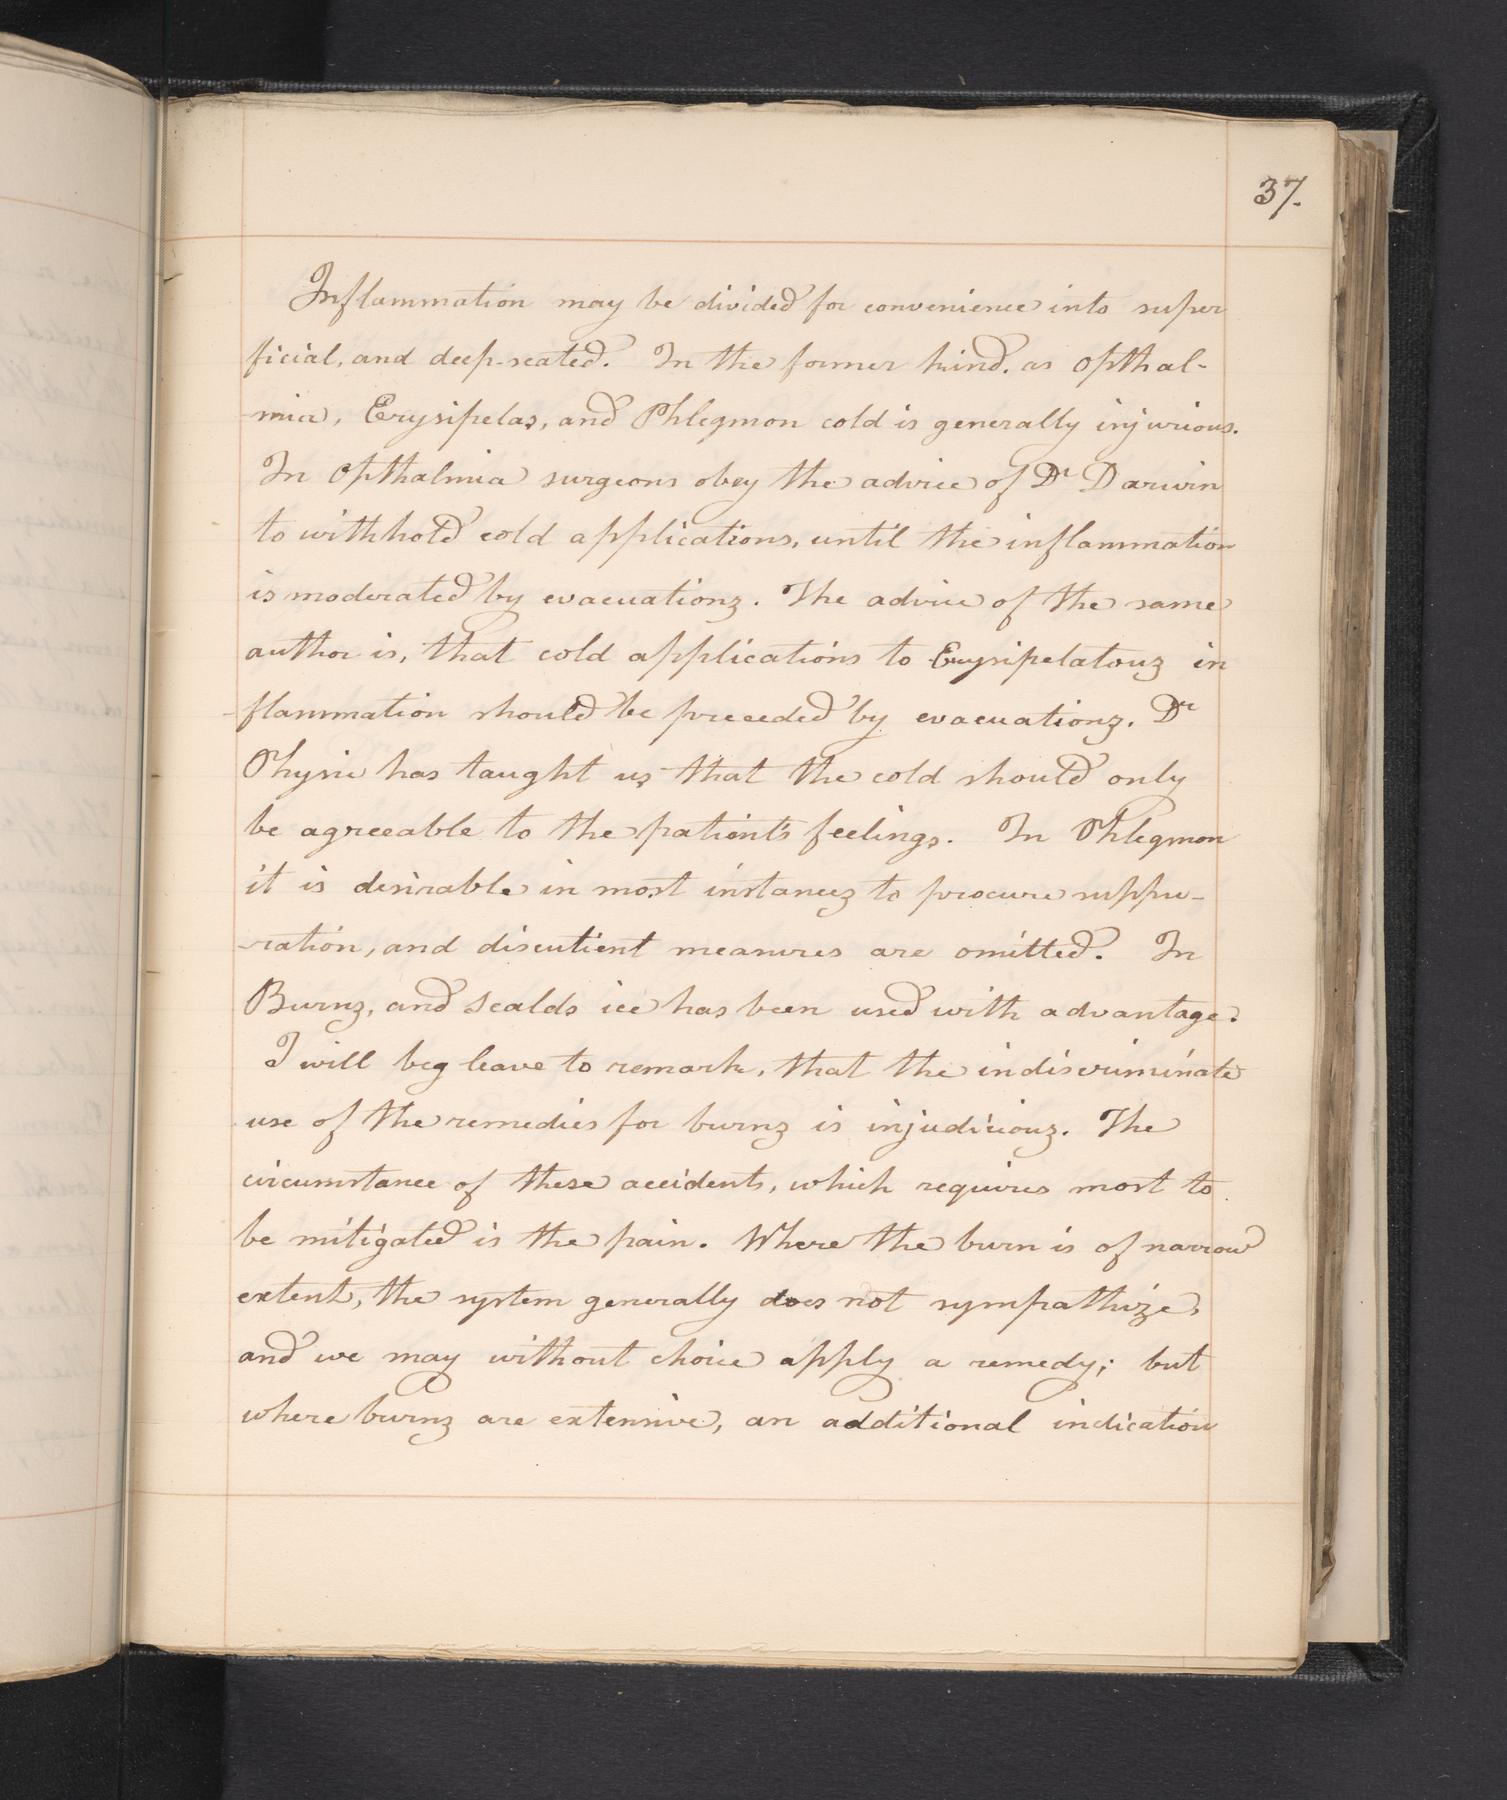 37.
Inflammation may be divided for convenience into super
ficial, and deep-seated. In the former kind, as Opthal-
mia, Erysipelas, and Phlegmon cold is generally injurious.
In Opthalmia surgeons obey the advice of Dr Darwin
to withhold cold applications, until the inflammation
is moderated by evacuations. The advice of the same
author is, that cold applications to Erysipelatous in
flammation should be preceeded by evacuations. Dr
Physic has taught us that the cold should only
be agreeable to the patient's feelings. In Phlegmon
it is desirable in most instances to procure suppu-
-ration, and discutient measures are omitted. In
Burns, and Scalds ice has been used with advantage.
I will beg leave to remark, that the indiscriminate
use of the remedies for burns is injudicious. The
circumstance of these accidents, which requires most to
be mitigated is the pain. Where the burn is of narrow
extent, the system generally does not sympathize,
and we may without choice apply a remedy; but
where burns are extensive, an additional indication